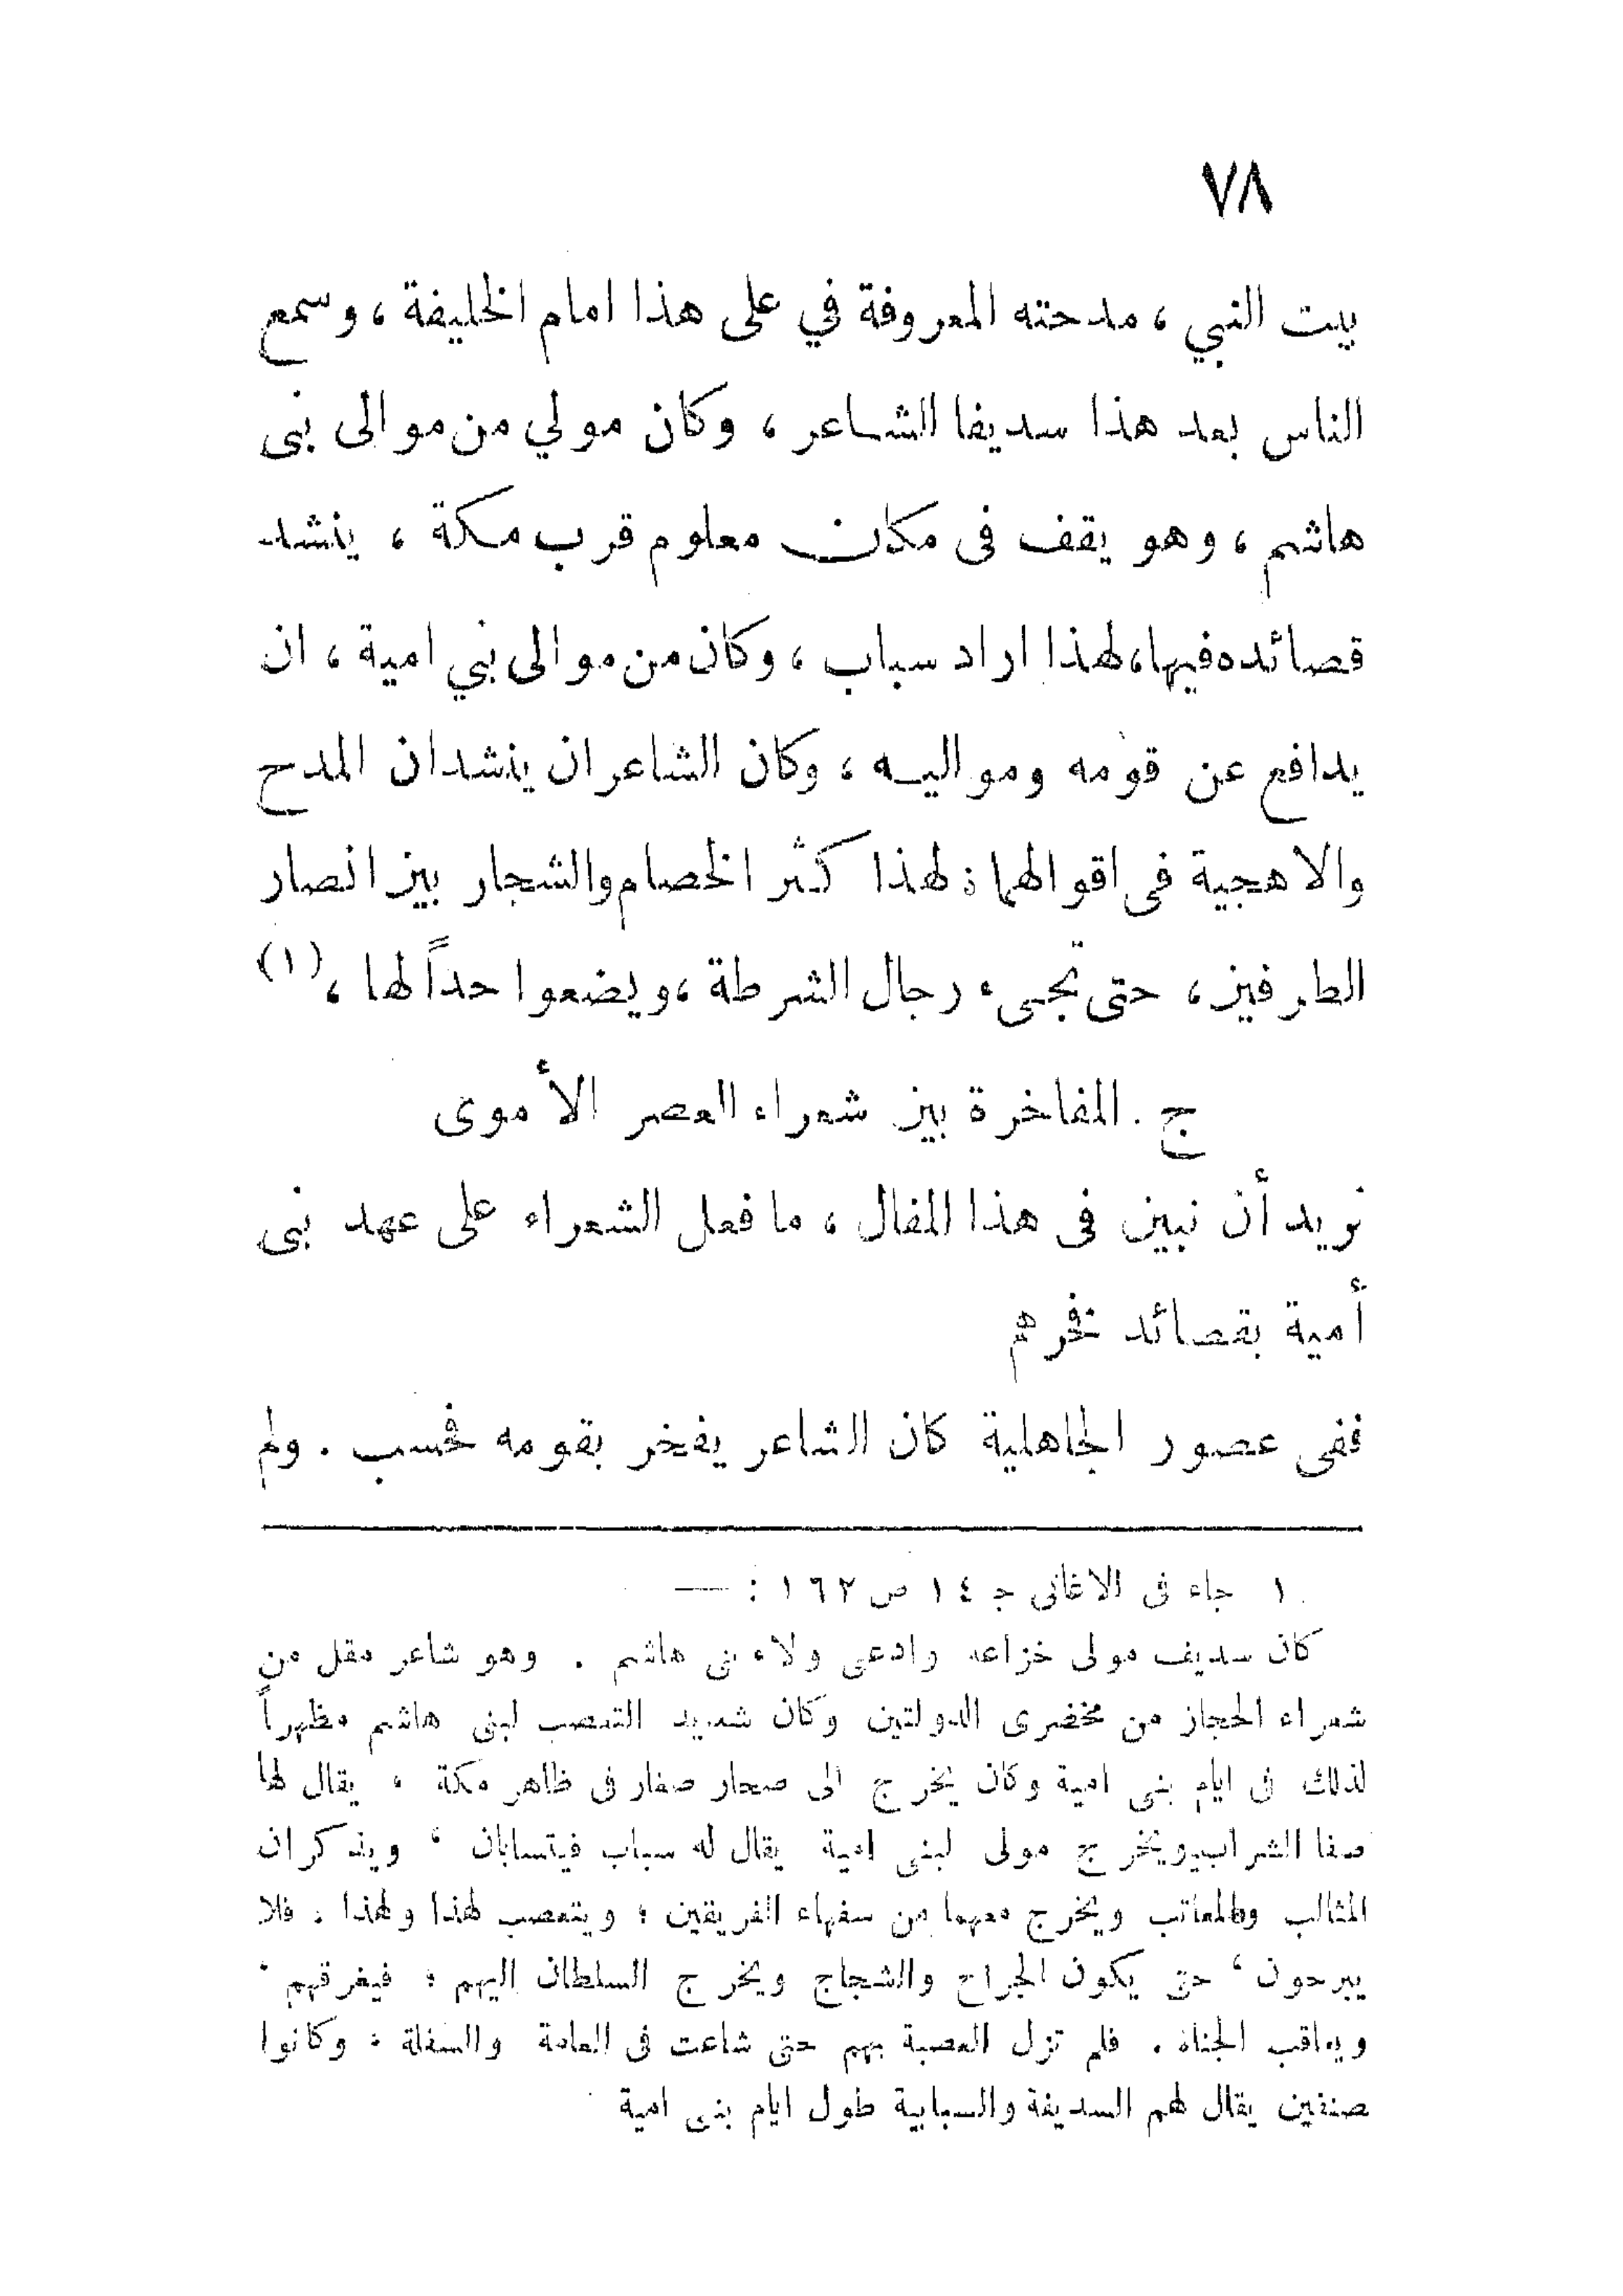 ٧٨
بيت النبي ، مدحته المعروفة في على هذا امام الخليفة ، وسمع
الناس بعد هذا سديفا الشاعر ، وكان مولي من موالى بنى
هاشم ، وهو يقف فى مكان معلوم قرب مكة ، ينشد
قصائده فيها، لهذا اراد سباب ، وكان من موالى بني امية ، ان
يدافع عن قومه ومواليه ، وكان الشاعران ينشدان المدح
والاهجية فى اقوالهما ؛ لهذا كثر الخصام والشجار بين انصار
الطرفين ، حتى تجىء رجال الشرطة ، ويضعوا حداً لها ، (١)
ج . المفاخرة بين شعراء العصر الأموى
نريد أن نبين فى هذا المقال ، ما فعل الشعراء على عهد بنى
أمية بقصائد فخرهم
ففى عصور الجاهلية كان الشاعر يفخر بقومه فحسب . ولم
١ جاء فى الاغانى جـ ١٤ ص ١٦٢ : —
كان سديف مولى خزاعه وادعى ولاء بنى هاشم . وهو شاعر مقل من
شعراء الحجاز من مخضرى الدولتين وكان شديد التعصب لبنى هاشم مظهراً
لذلك فى ايام بنى امية وكان يخرج الى صحار صفار فى ظاهر مكة ، يقال لها
صفا الشراب ويخرج مولى لبنى امية يقال له سباب فيتسابان ، ويذكران
المثالب والمعائب ويخرج معهما من سفهاء الفريقين ؛ ويتعصب لهذا ولهذا . فلا
يبرحون ، حتى يكون الجراح والشجاج ويخرج السلطان اليهم ؛ فيفرقهم
ويعاقب الجناة . فلم تزل العصبة بهم حتى شاعت فى العامة والسفلة ؛ وكانوا
صنفين يقال لهم السديفة والسبابية طول ايام بنى امية